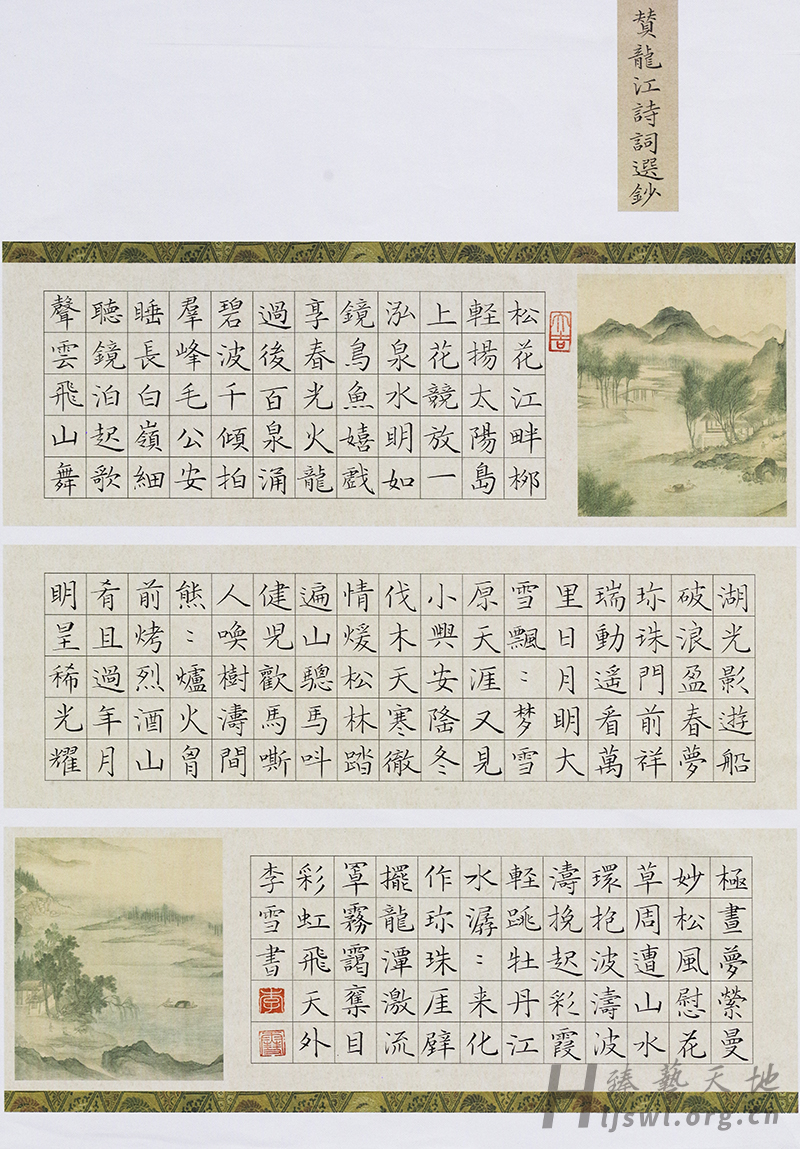 贊龍江詩詞選鈔
大吉
松花江畔柳
軽揚太陽島
上花競放一
泓泉水明如
鏡鳥魚嬉戲
享春光火龍
過後百泉涌
碧波千傾拍
羣峰毛公安
睡長白嶺細
聽鏡泊起歌
聲雲飛山舞
湖光影遊船
破浪盈春夢
珎珠門前祥
瑞動遥看萬
里日月明大
雪飄:梦雪
原天涯又見
小興安隆冬
伐木天寒徹
情煖松林踏
遍山驄馬叫
健児歡馬嘶
人喚樹濤間
熊:爐火胷
前烤烈酒山
肴且過年月
明呈稀光耀
極晝夢縈曼
妙松風慰花
草周遭山水
環抱波濤波
濤挽起彩霞
軽跳牡丹江
水潺:来化
作珎珠厓壁
擺龍潭激流
罩霧靄奪目
彩虹飛天外
李雪書
李
雪
臻藝天地
Hljswl.org.cn